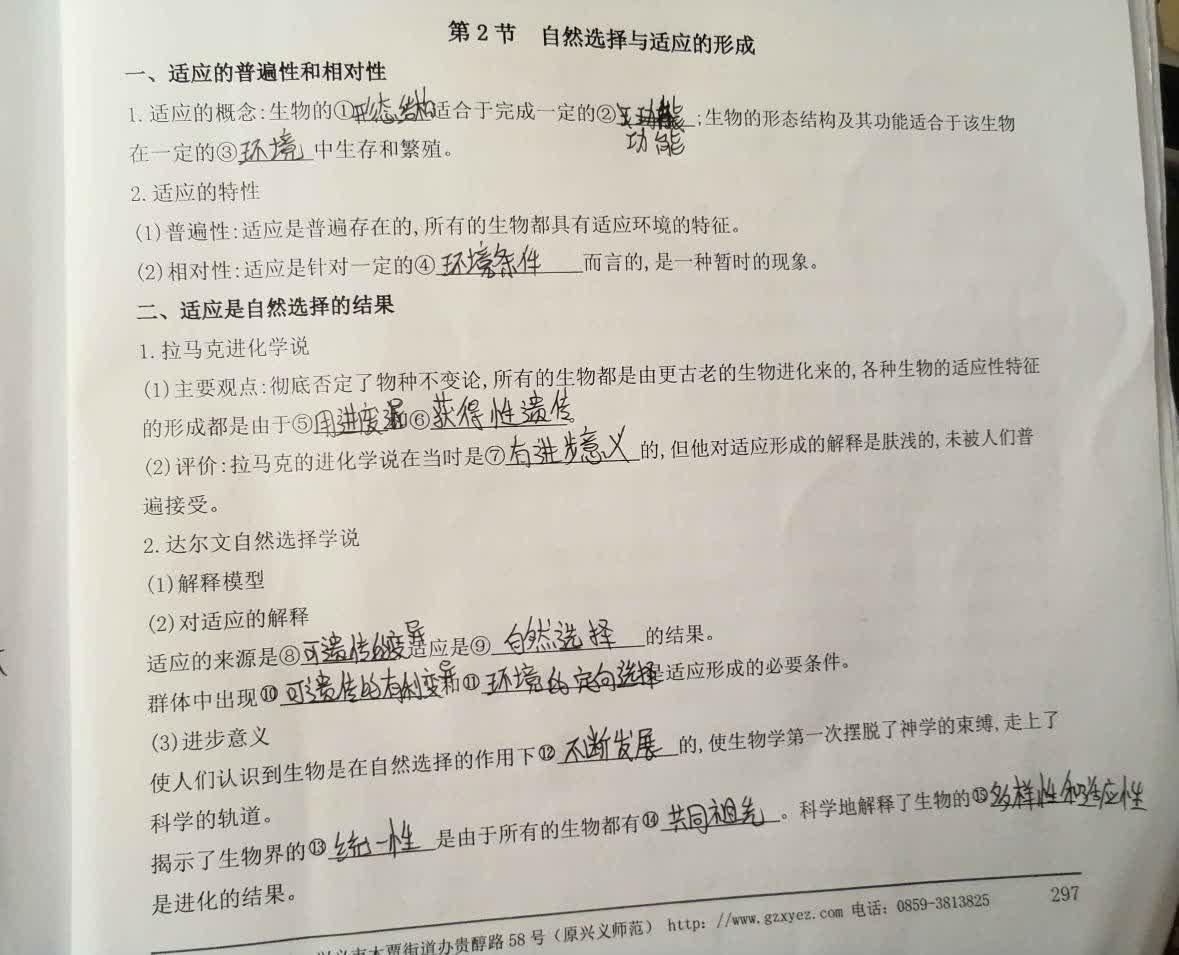 第2节 自然选择与适应的形成
一、适应的普遍性和相对性
1.适应的概念:生物的①形态结构适合于完成一定的②功能;生物的形态结构及其功能适合于该生物
功能
在一定的③环境中生存和繁殖。
2.适应的特性
(1)普遍性:适应是普遍存在的,所有的生物都具有适应环境的特征。
(2)相对性:适应是针对一定的④环境条件而言的,是一种暂时的现象。
二、适应是自然选择的结果
1.拉马克进化学说
(1)主要观点:彻底否定了物种不变论,所有的生物都是由更古老的生物进化来的,各种生物的适应性特征
的形成都是由于⑤用进废退和⑥获得性遗传。
(2)评价:拉马克的进化学说在当时是⑦有进步意义的,但他对适应形成的解释是肤浅的,未被人们普
遍接受。
2.达尔文自然选择学说
(1)解释模型
(2)对适应的解释
适应的来源是⑧可遗传的变异适应是⑨自然选择的结果。
群体中出现⑩可遗传的有利变异和⑪环境的定向选择是适应形成的必要条件。
(3)进步意义
使人们认识到生物是在自然选择的作用下⑫不断发展的,使生物学第一次摆脱了神学的束缚,走上了
科学的轨道。
揭示了生物界的⑬统一性是由于所有的生物都有⑭共同祖先。科学地解释了生物的⑮多样性和适应性
是进化的结果。
街道办贵醇路58号(原兴义师范) http: //www.gzxyez.com 电话: 0859-3813825 297